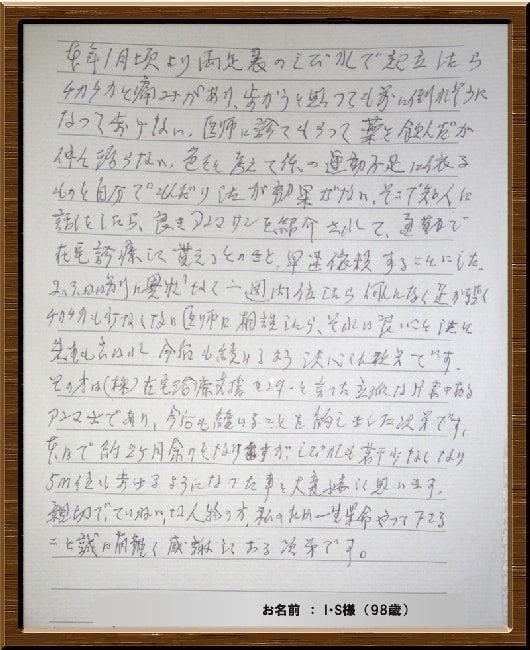 本年1月頃より両足裏のしびれで起立したら
チカチカと痛みがあり、歩かうと思っても前に倒れそうに
なって歩けない、医師に診てもらって薬を飲んだが
仲々治らない、色々と考えて体の運動不足に依る
ものと自分で が効果がない、そこで知人に
話をしたら、良きアンマサンを紹介されて、通勤で
在宅診療して貰えるとのこと、早速依頼することにした。
2、3回は別に異状なく一週間位したら何んなく足が軽く
チカチカも少なくなり医師に相談したら、それは良いことだと
先生も云はれ 今后も続けるよう決心した次第です。
その方は(株)在宅治療支援センターと言った立派な 書のある
アンマ士であり、今后も続けることを約しました次第です。
本日で約2ヶ月余りとなりますがしびれも若干少なくなり
5m位も歩けるようになった事を大変嬉しく思います。
親切でていねいな人物の方、私のため一生懸命やって下さる
こと誠に有難く感謝してある次第です。
お名前 : I・S様 (98歳)